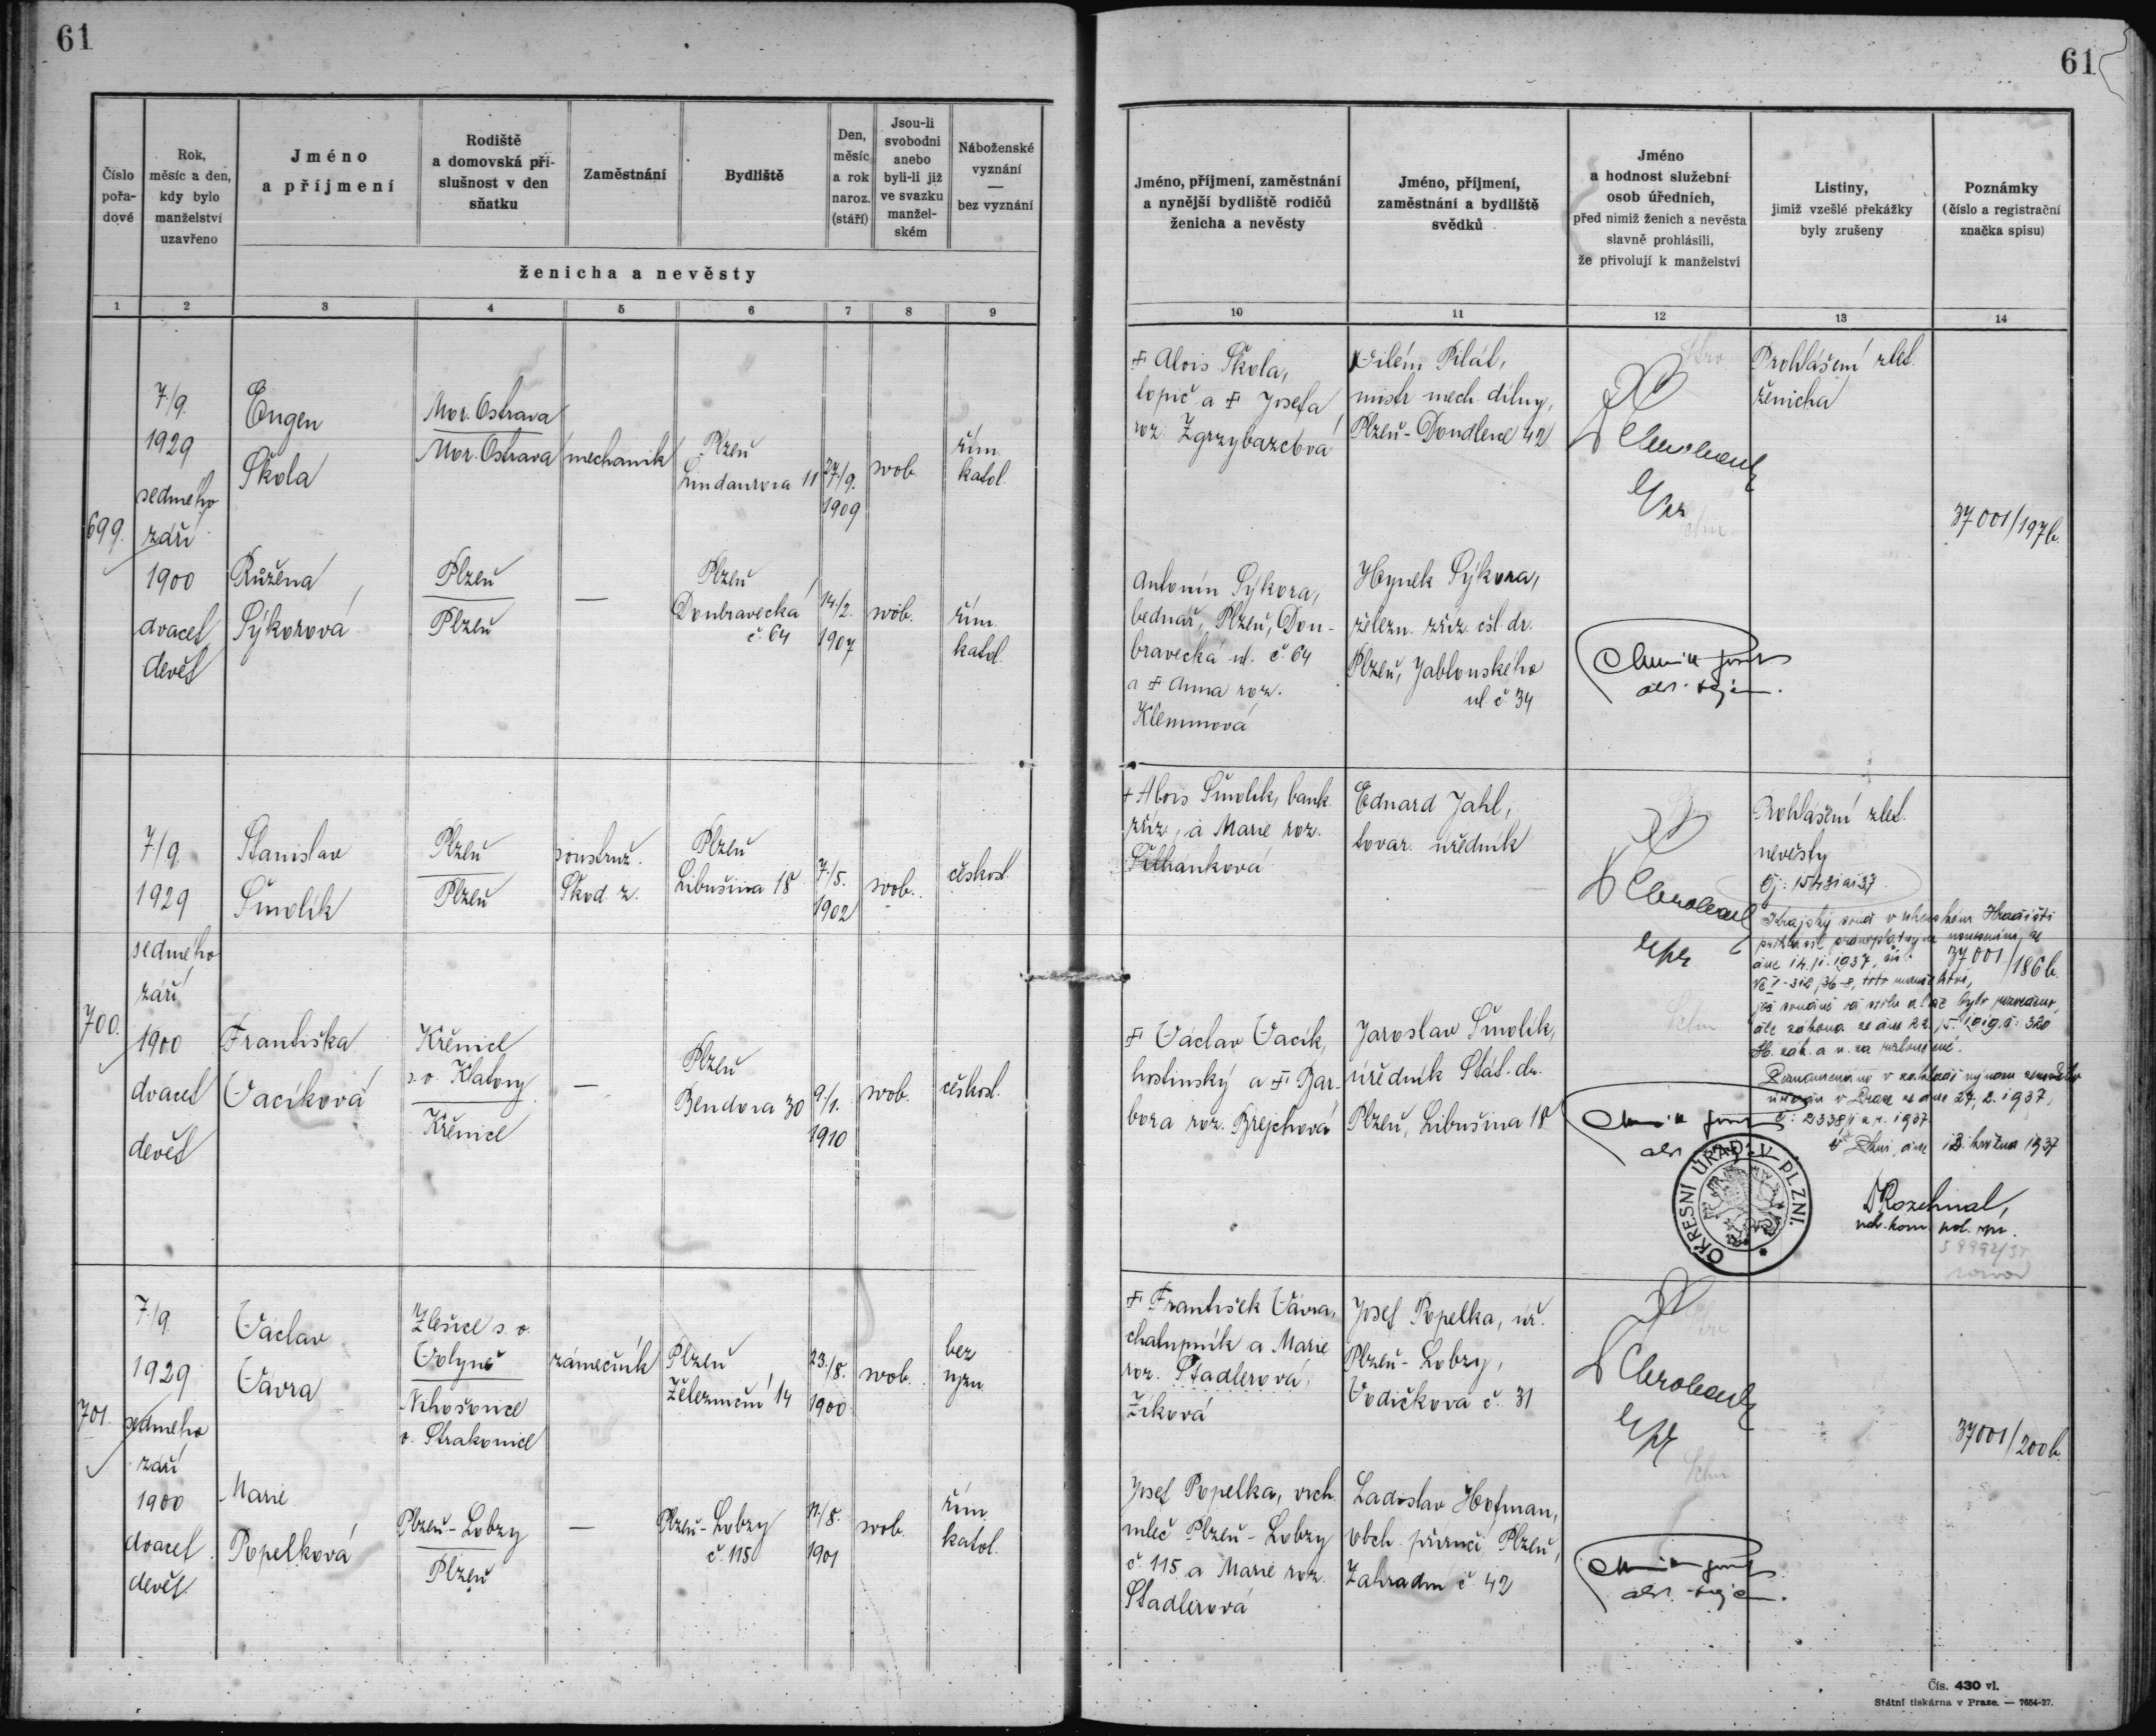 61
61
Číslo
pořa-
dové
Rok,
měsíc a den,
kdy bylo
manželství
uzavřeno
Jméno
a příjmení
Rodiště
a domovská pří-
slušnost v den
sňatku
Zaměstnání
Bydliště
Den,
měsíc
a rok
naroz.
(stáří)
Jsou-li
svobodni
anebo
byli-li již
ve svazku
manžel-
ském
Náboženské
vyznání
—
bez vyznání
ženicha a nevěsty
Jméno, příjmení, zaměstnání
a nynější bydliště rodičů
ženicha a nevěsty
Jméno, příjmení,
zaměstnání a bydliště
svědků
Jméno
a hodnost služební
osob úředních,
před nimiž ženich a nevěsta
slavně prohlásili,
že přivolují k manželství
Listiny,
jimiž vzešlé překážky
byly zrušeny
Poznámky
(číslo a registrační
značka spisu)
1 2 3 4 5 6 7 8 9
10 11 12 13 14
699.
7./9.
1929
sedmého
září
1900
dvacet
devět
Eugen
Škola
Mor. Ostrava
Mor. Ostrava
mechanik
Plzeň
Lindaurova 11
27./9.
1909
svob.
řím.
katol.
Růžena
Sýkorová
Plzeň
Plzeň
—
Plzeň
Doubravecká
č. 64
14./2.
1907
svob.
řím.
katol.
+ Alois Škola,
topič a + Josefa
roz. Zgrzybazclová
Vilém Pilát,
mistr mech. dílny,
Plzeň - Doudlevce 42
Prohlášení zlet.
ženicha
37001/197b.
Antonín Sýkora,
bednář, Plzeň, Dou-
bravecká ul. č. 64
a + Anna roz.
Klemmová
Hynek Sýkora,
železn. zříz. čsl. dr.
Plzeň, Jablonského
ul. č. 34
700.
7./9.
1929
sedmého
září
1900
dvacet
devět
Stanislav
Šmolík
Plzeň
Plzeň
soustruž.
Škod. z.
Plzeň
Libušina 18
7./5.
1902
svob.
českosl.
Františka
Vacíková
Křenice
s. o. Klatovy
Křenice
—
Plzeň
Bendova 30
9./1.
1910
svob.
českosl.
+ Alois Šmolík, bank.
zříz., a Marie roz.
Eduard Jahl,
tovar. úředník
Prohlášení zlet.
nevěsty
Krajský soud v uherském Hradišti
dne 14./1. 1937,
37001/186b.
ze dne 22./5. 1919. č. 320
Sb. zák. a n. za rozloučené.
úřadu v Praze ze dne 27. 2. 1937,
V Plzni, dne 13. května 1937
Dr Rozehnal,
+ Václav Vacík,
hostinský a + Bar-
bora roz. Brejchová
Jaroslav Šmolík,
úředník Stát. dr.
Plzeň, Libušina 18
OKRESNÍ ÚŘAD V PLZNI.
rozvod
701.
7./9.
1929
sedmého
září
1900
dvacet
devět
Václav
Vávra
Zlešice s. o.
Volyně
Nihošovice
o. Strakonice
zámečník
Plzeň
Železniční 14
23./8.
1900
svob.
bez
vyzn.
Marie
Popelková
Plzeň - Lobzy
Plzeň
—
Plzeň - Lobzy
č. 115
11./8.
1901
svob.
řím.
katol.
+ František Vávra,
chalupník a Marie
roz. Stadlerová,
Žiková
Josef Popelka, úř.
Plzeň - Lobzy,
Vodičkova č. 31
37001/200b.
Josef Popelka, vrch.
mleč. Plzeň - Lobzy
č. 115 a Marie roz.
Stadlerová
Ladislav Hofman,
obch. příručí Plzeň,
Zahradní č. 42
Čís. 430 vl.
Státní tiskárna v Praze. — 7654-27.